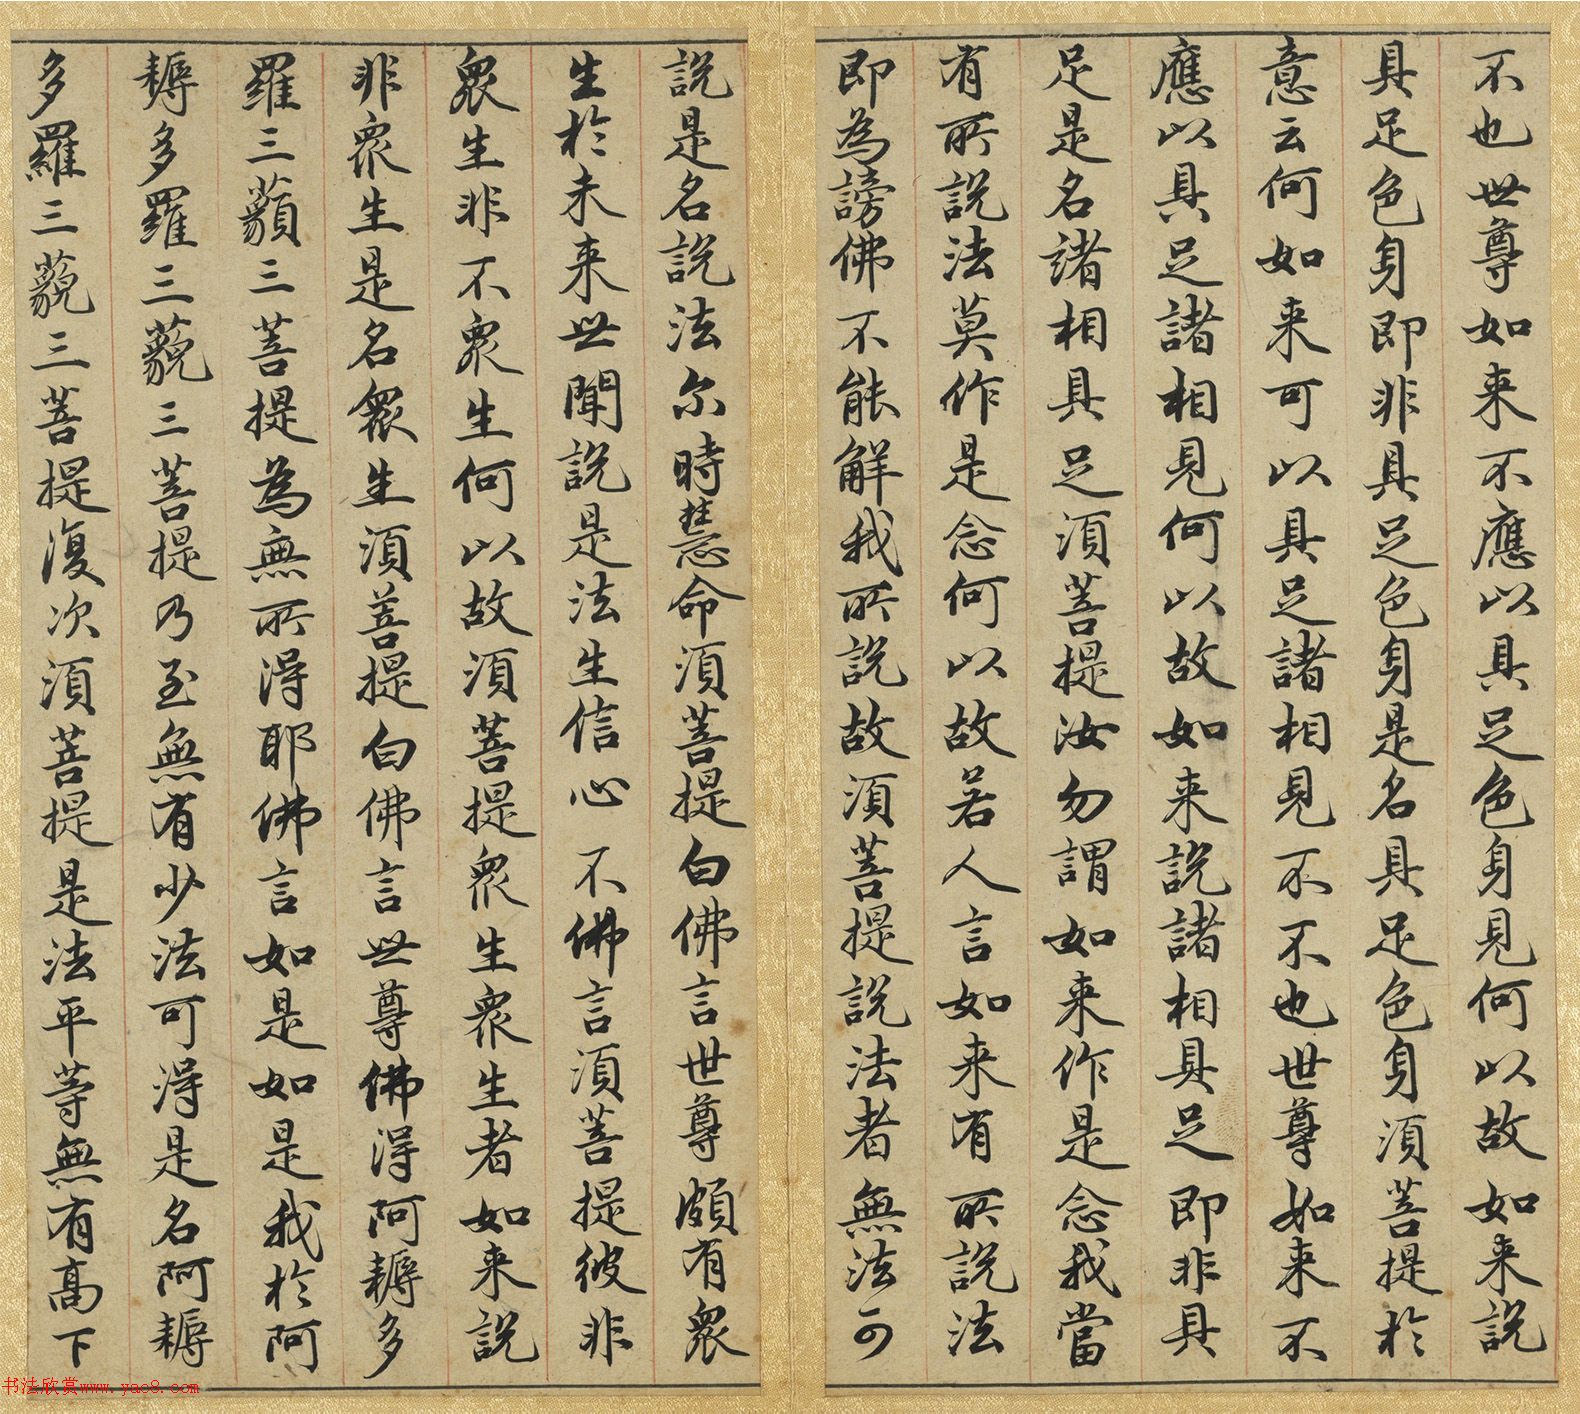 不也世尊如来不應以具足色身見何以故如来說
具足色身即非具足色身是名具足色身須菩提於
意云何如来可以具足諸相見不不也世尊如来不
應以具足諸相見何以故如来說諸相具足即非具
足是名諸相具足須菩提汝勿謂如来作是念我當
有所說法莫作是念何以故若人言如来有所說法
即為謗佛不能解我所說故須菩提說法者無法可
說是名說法尓時慧命須菩提白佛言世尊頗有衆
生於未来世聞說是法生信心不佛言須菩提彼非
衆生非不衆生何以故須菩提衆生衆生者如来說
非衆生是名衆生須菩提白佛言世尊佛得阿耨多
羅三藐三菩提為無所得耶佛言如是如是我於阿
耨多羅三藐三菩提乃至無有少法可得是名阿耨
多羅三藐三菩提復次須菩提是法平等無有高下
书法欣赏www.yac8.com